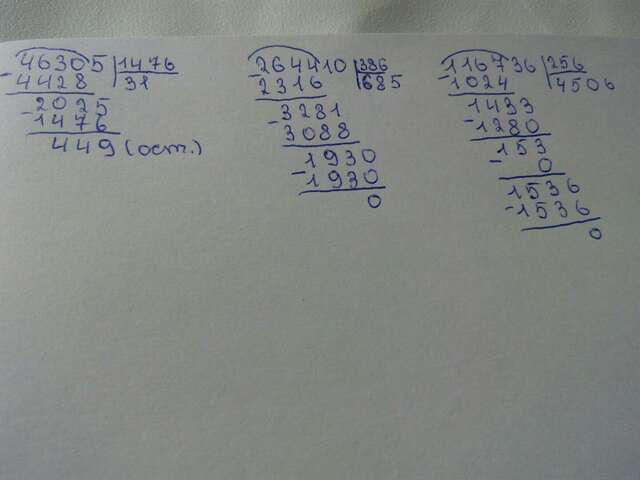 46305 1476
- 4428 31
- 2025
1476
449 (ост.)
264410 386
- 2316 685
- 3281
3088
- 1930
1930
0
116736 256
- 1024 4506
- 1433
1280
- 153
0
- 1536
1536
0